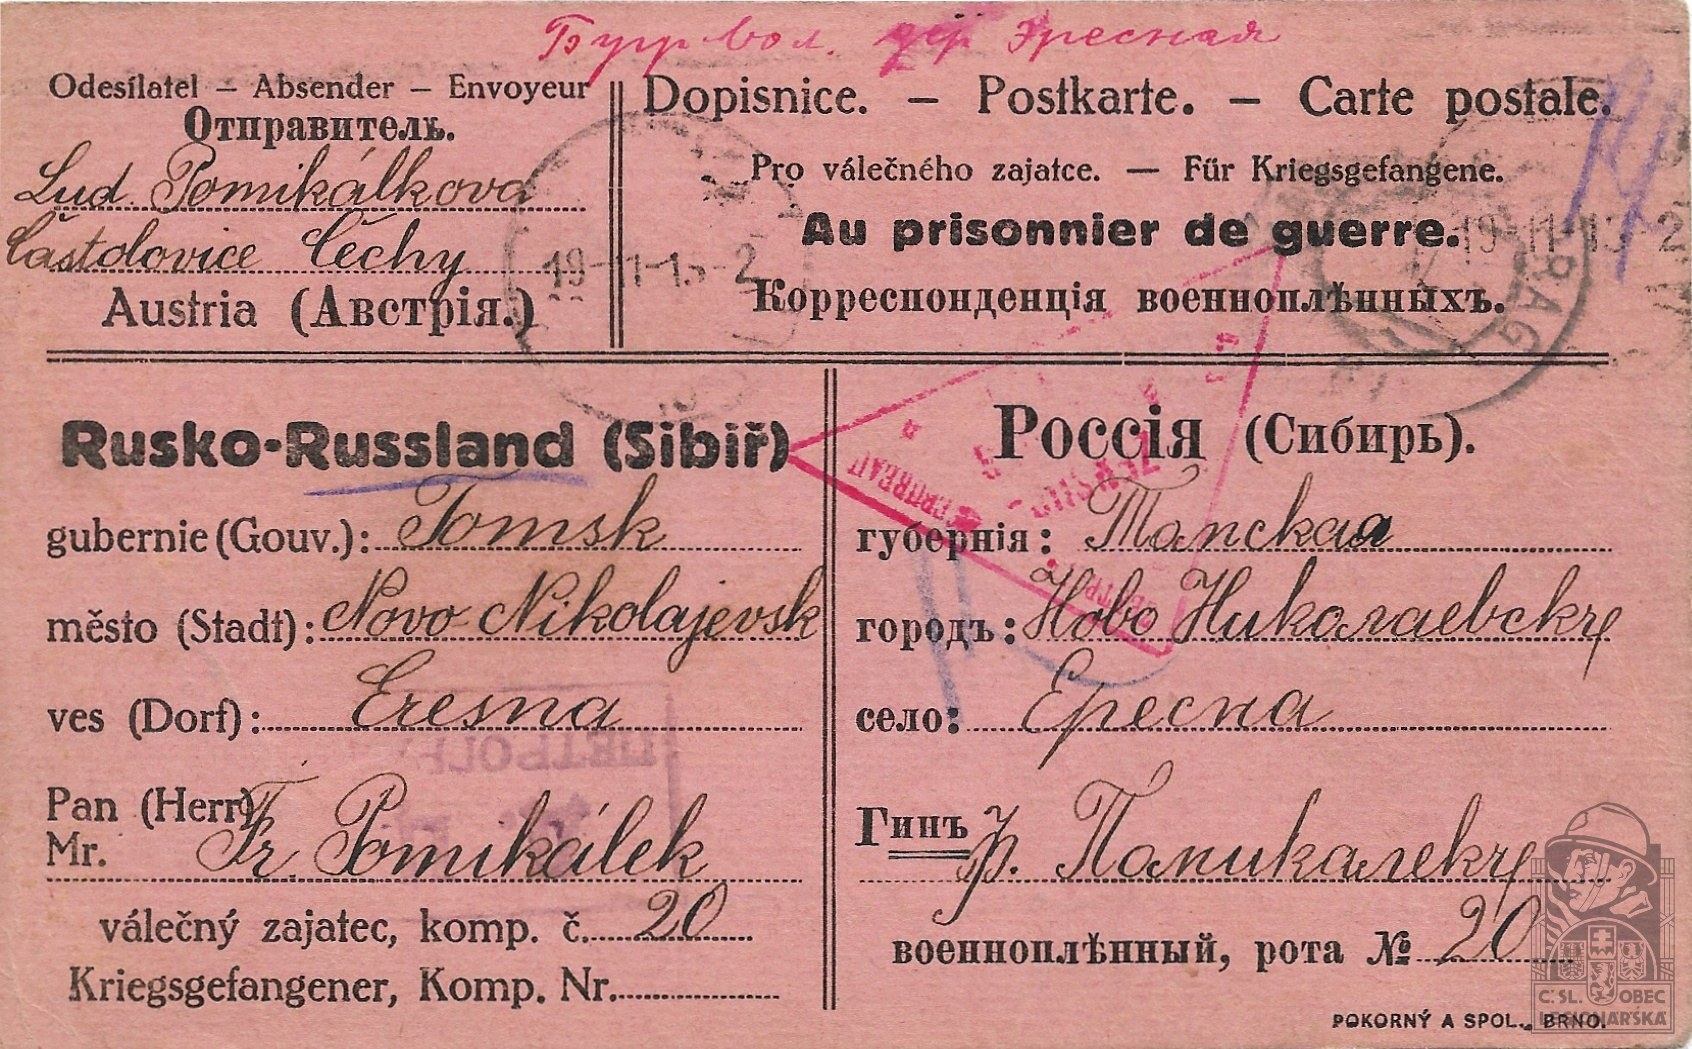 вол. дер. Эресная
Odesílatel – Absender – Envoyeur
Отправитель.
Lud. Pomikálkova
Častolovice Čechy
Austria (Австрія.)
Dopisnice. – Postkarte. – Carte postale.
Pro válečného zajatce. — Für Kriegsgefangene.
Au prisonnier de guerre.
Корреспонденція военноплѣнныхъ.
Rusko-Russland (Sibiř)
gubernie (Gouv.): Tomsk
město (Stadt): Novo-Nikolajevsk
ves (Dorf): Eresna
Pan (Herr)
Mr. Fr. Pomikálek
válečný zajatec, komp. č. 20
Kriegsgefangener, Komp. Nr.
Россія (Сибирь).
губернія: Томская
городъ: Ново Николаевскъ
село: Ересна
Гинъ Фр. Помикалекъ
военноплѣнный, рота № 20
POKORNÝ A SPOL., BRNO.
PRAG
Č. SL. OBEC
LEGIONÁŘSKÁ